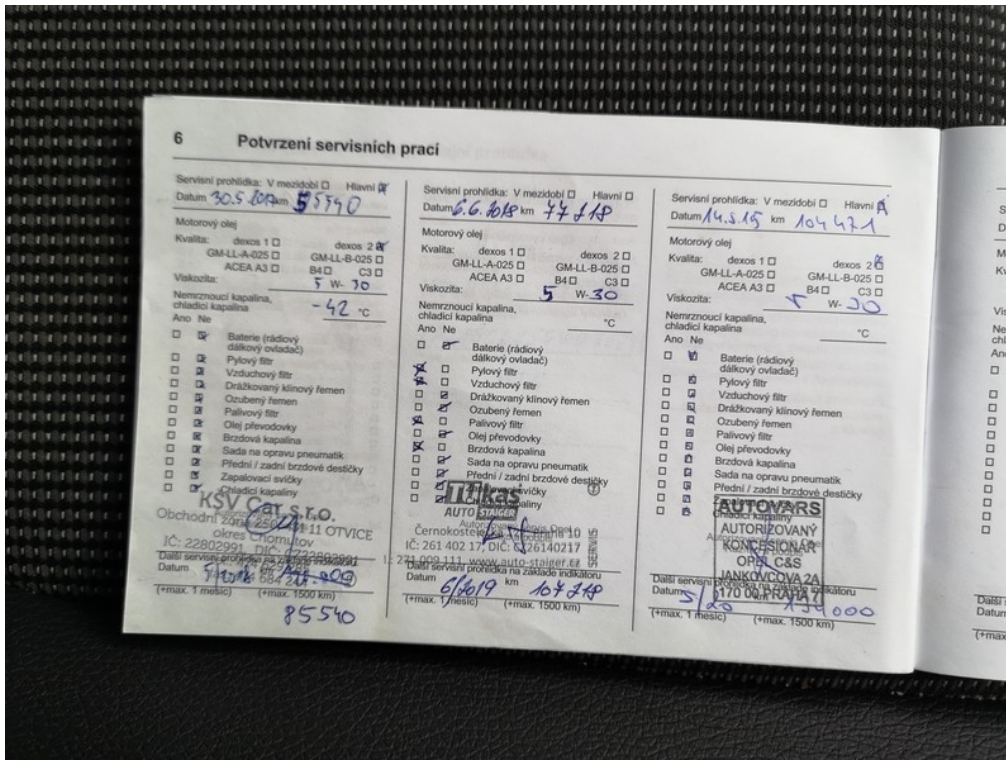 6 Potvrzení servisních prací
Servisní prohlídka: V mezidobí Hlavní
Datum 30.5.2017 km 55540
Motorový olej
Kvalita: dexos 1 dexos 2
GM-LL-A-025 GM-LL-B-025
ACEA A3 B4 C3
Viskozita: 5 W- 30
Nemrznoucí kapalina,
chladicí kapalina -42 °C
Ano Ne
Baterie (rádiový
dálkový ovladač)
Pylový filtr
Vzduchový filtr
Drážkovaný klínový řemen
Ozubený řemen
Palivový filtr
Olej převodovky
Brzdová kapalina
Sada na opravu pneumatik
Přední / zadní brzdové destičky
Zapalovací svíčky
Chladicí kapaliny
KŠV Car s.r.o.
Obchodní zóna 11 OTVICE
okres Chomutov
IČ: 22802991 DIČ:
Další servisní prohlídka na základě indikátoru
Datum
(+max. 1 měsíc) (+max. 1500 km)
85540
Servisní prohlídka: V mezidobí Hlavní
Datum 6.6.2018 km 77218
Motorový olej
Kvalita: dexos 1 dexos 2
GM-LL-A-025 GM-LL-B-025
ACEA A3 B4 C3
Viskozita: 5 W- 30
Nemrznoucí kapalina,
chladicí kapalina °C
Ano Ne
Baterie (rádiový
dálkový ovladač)
Pylový filtr
Vzduchový filtr
Drážkovaný klínový řemen
Ozubený řemen
Palivový filtr
Olej převodovky
Brzdová kapalina
Sada na opravu pneumatik
Přední / zadní brzdové destičky
AUTO STAIGER
SERVIS
IČ: 261 402 17, DIČ:
271 009 111, www.auto-staiger.cz
Další servisní prohlídka na základě indikátoru
Datum 6/2019 km 107218
(+max. 1 měsíc) (+max. 1500 km)
Servisní prohlídka: V mezidobí Hlavní
Datum km 104471
Motorový olej
Kvalita: dexos 1 dexos 2
GM-LL-A-025 GM-LL-B-025
ACEA A3 B4 C3
Viskozita: 5 W- 30
Nemrznoucí kapalina,
chladicí kapalina °C
Ano Ne
Baterie (rádiový
dálkový ovladač)
Pylový filtr
Vzduchový filtr
Drážkovaný klínový řemen
Ozubený řemen
Palivový filtr
Olej převodovky
Brzdová kapalina
Sada na opravu pneumatik
Přední / zadní brzdové destičky
AUTOVARS
AUTORIZOVANÝ
KONCESIONÁŘ
OPEL C&S
JANKOVCOVA 2A
170 00 PRAHA 7
Další servisní prohlídka na základě indikátoru
Datum 5/20
(+max. 1 měsíc) (+max. 1500 km)